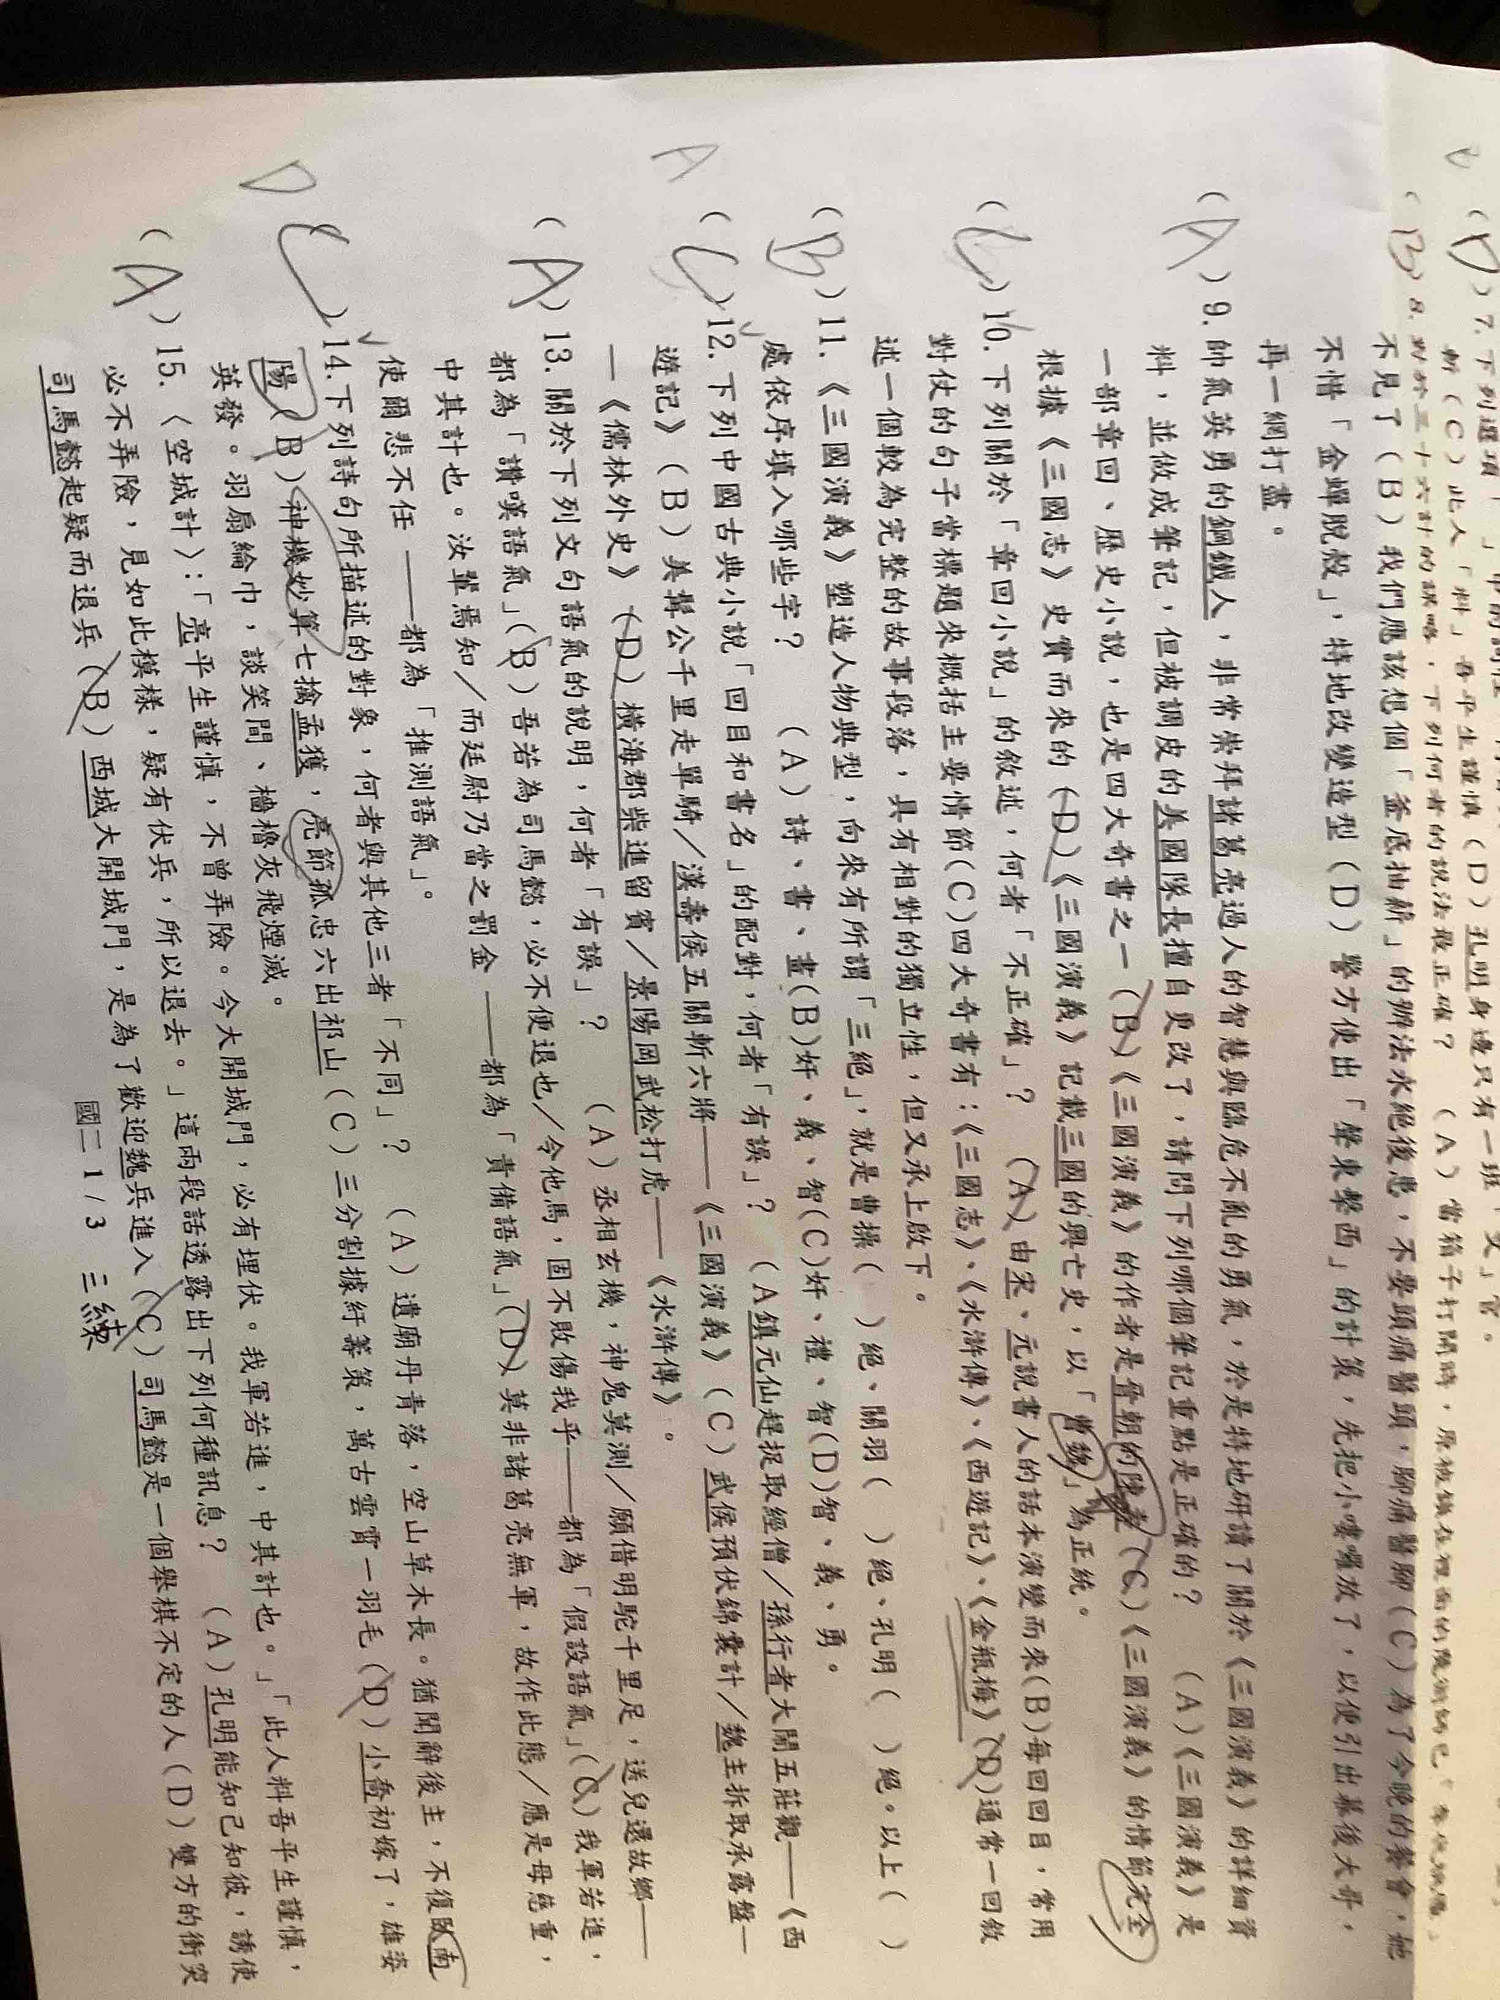 (D)7.下列選項「 」中的詞性
斬(C)此人「料」吾平生謹慎(D)孔明身邊只有一班「文」官。
(B)8.對於三十六計的謀略,下列何者的說法最正確?(A)當箱子打開時,原被鎖在裡面的魔術師已
不見了(B)我們應該想個「釜底抽薪」的辦法永絕後患,不要頭痛醫頭,腳痛醫腳(C)為了今晚的餐會,他
不惜「金蟬脫殼」,特地改變造型(D)警方使出「聲東擊西」的計策,先把小嘍囉放了,以便引出幕後大哥,
再一網打盡。
(A)9.帥氣英勇的鋼鐵人,非常崇拜諸葛亮過人的智慧與臨危不亂的勇氣,於是特地研讀了關於《三國演義》的詳細資
料,並做成筆記,但被調皮的美國隊長擅自更改了,請問下列哪個筆記重點是正確的?(A)《三國演義》是
一部章回、歷史小說,也是四大奇書之一(B)《三國演義》的作者是晉朝的陳壽(C)《三國演義》的情節完全
根據《三國志》史實而來的(D)《三國演義》記載三國的興亡史,以「曹魏」為正統。
(C)10.下列關於「章回小說」的敘述,何者「不正確」?(A)由宋、元說書人的話本演變而來(B)每回回目,常用
對仗的句子當標題來概括主要情節(C)四大奇書有:《三國志》、《水滸傳》、《西遊記》、《金瓶梅》(D)通常一回敘
述一個較為完整的故事段落,具有相對的獨立性,但又承上啟下。
(B)11.《三國演義》塑造人物典型,向來有所謂「三絕」,就是曹操( )絕、關羽( )絕、孔明( )絕。以上( )
處依序填入哪些字?(A)詩、書、畫(B)奸、義、智(C)奸、禮、智(D)智、義、勇。
A
(C)12.下列中國古典小說「回目和書名」的配對,何者「有誤」?(A鎮元仙趕捉取經僧/孫行者大鬧五莊觀——《西
遊記》(B)美髯公千里走單騎/漢壽侯五關斬六將——《三國演義》(C)武侯預伏錦囊計/魏主拆取承露盤—
—《儒林外史》(D)橫海郡柴進留賓/景陽岡武松打虎——《水滸傳》。
(A)13.關於下列文句語氣的說明,何者「有誤」?(A)丞相玄機,神鬼莫測/願借明駝千里足,送兒還故鄉——
都為「讚嘆語氣」(B)吾若為司馬懿,必不便退也/令他馬,固不敗傷我乎——都為「假設語氣」(C)我軍若進,
中其計也。汝輩焉知/而廷尉乃當之罰金——都為「責備語氣」(D)莫非諸葛亮無軍,故作此態/應是母慈重,
使爾悲不任——都為「推測語氣」。
D
(C)14.下列詩句所描述的對象,何者與其他三者「不同」?(A)遺廟丹青落,空山草木長。猶聞辭後主,不復臥南
陽(B)神機妙算七擒孟獲,亮節孤忠六出祁山(C)三分割據紆籌策,萬古雲霄一羽毛(D)小喬初嫁了,雄姿
英發。羽扇綸巾,談笑間、檣櫓灰飛煙滅。
(A)15.〈空城計〉:「亮平生謹慎,不曾弄險。今大開城門,必有埋伏。我軍若進,中其計也。」「此人料吾平生謹慎,
必不弄險,見如此模樣,疑有伏兵,所以退去。」這兩段話透露出下列何種訊息?(A)孔明能知己知彼,誘使
司馬懿起疑而退兵(B)西城大開城門,是為了歡迎魏兵進入(C)司馬懿是一個舉棋不定的人(D)雙方的衝突
國二1/3 三練